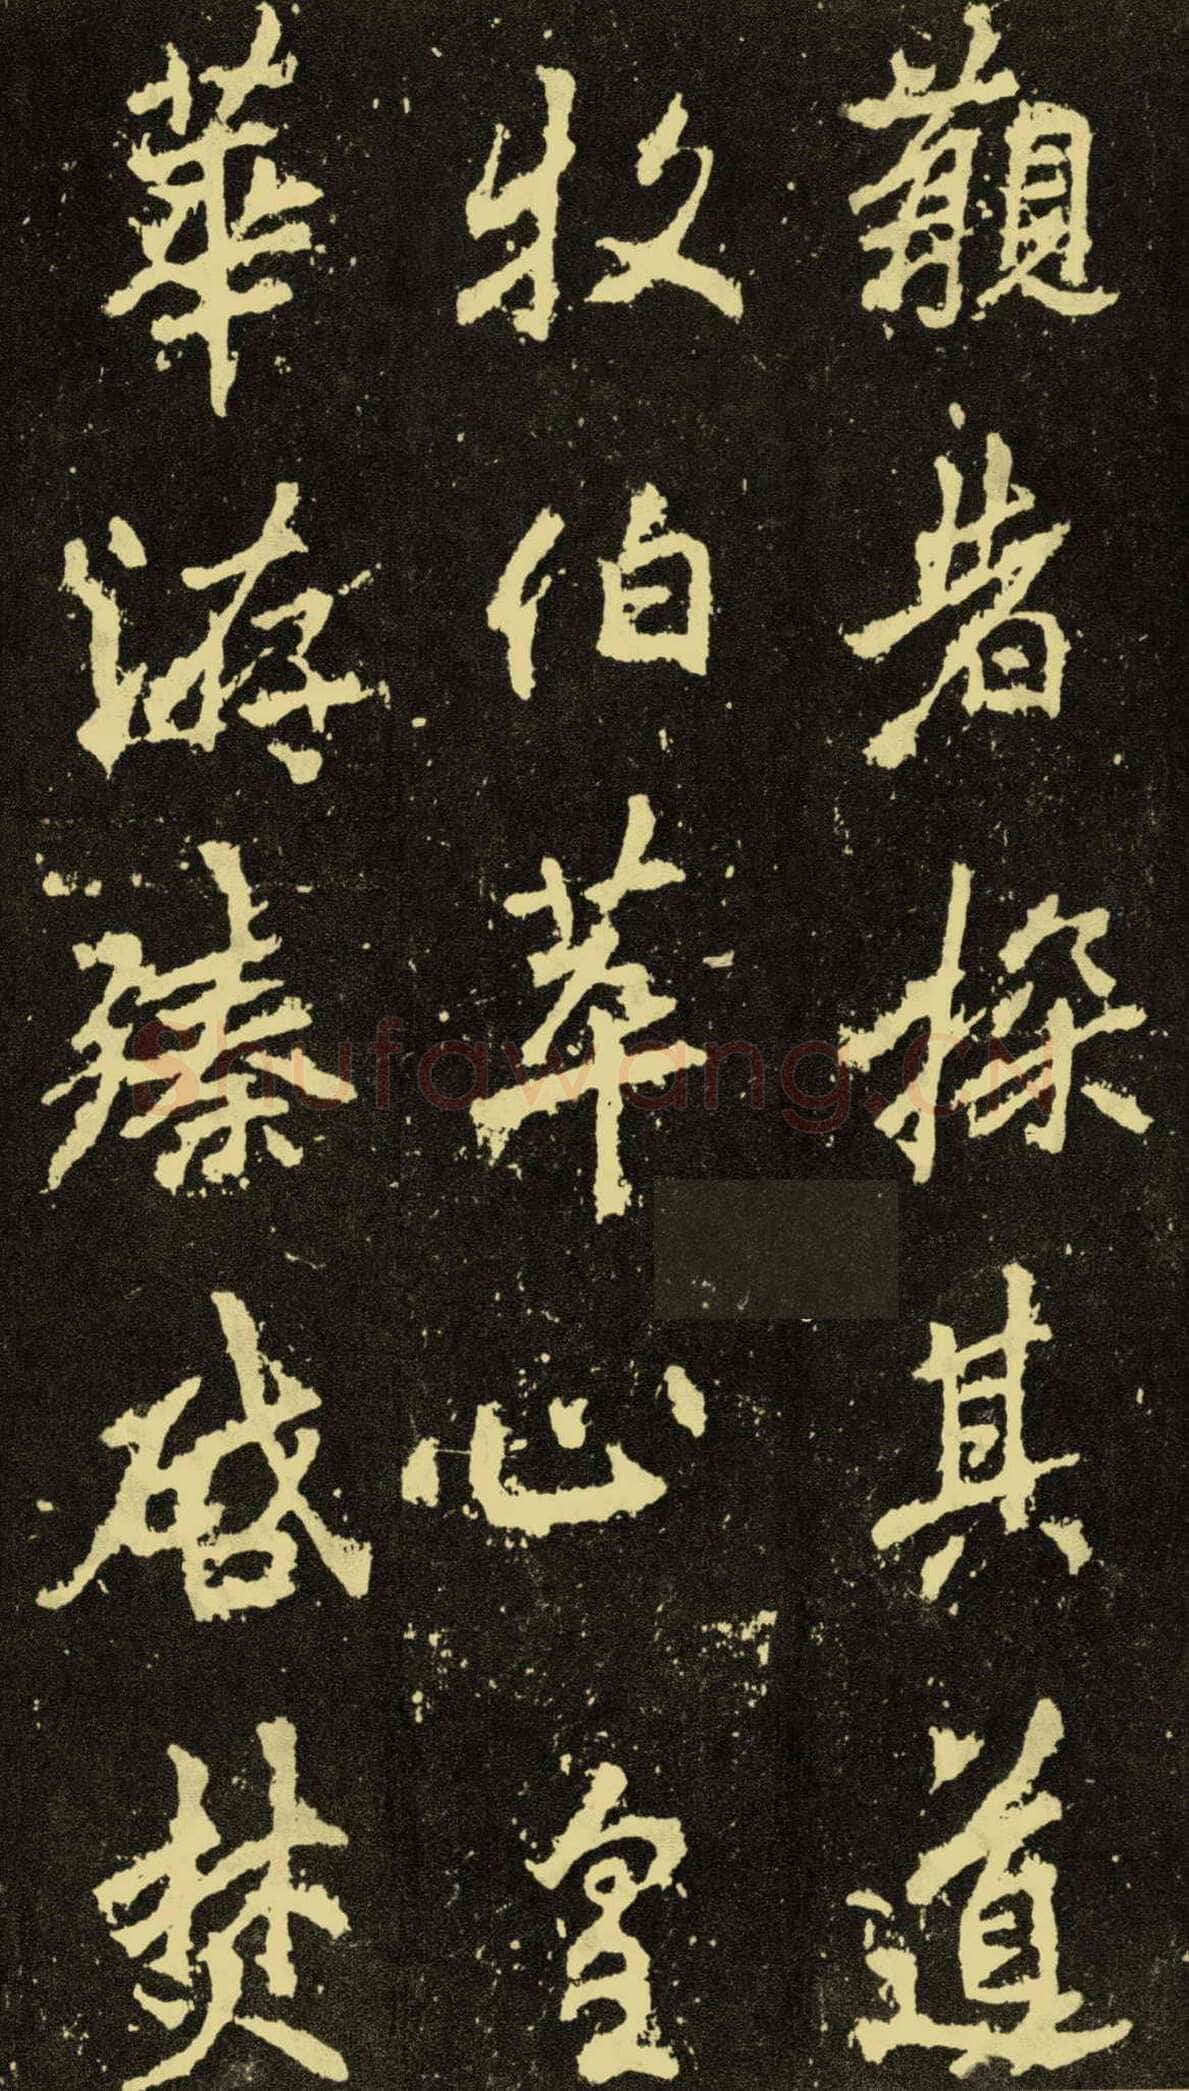 觀者探其道
牧伯萃心皇
華游臻啓焚
Shufawang.CN